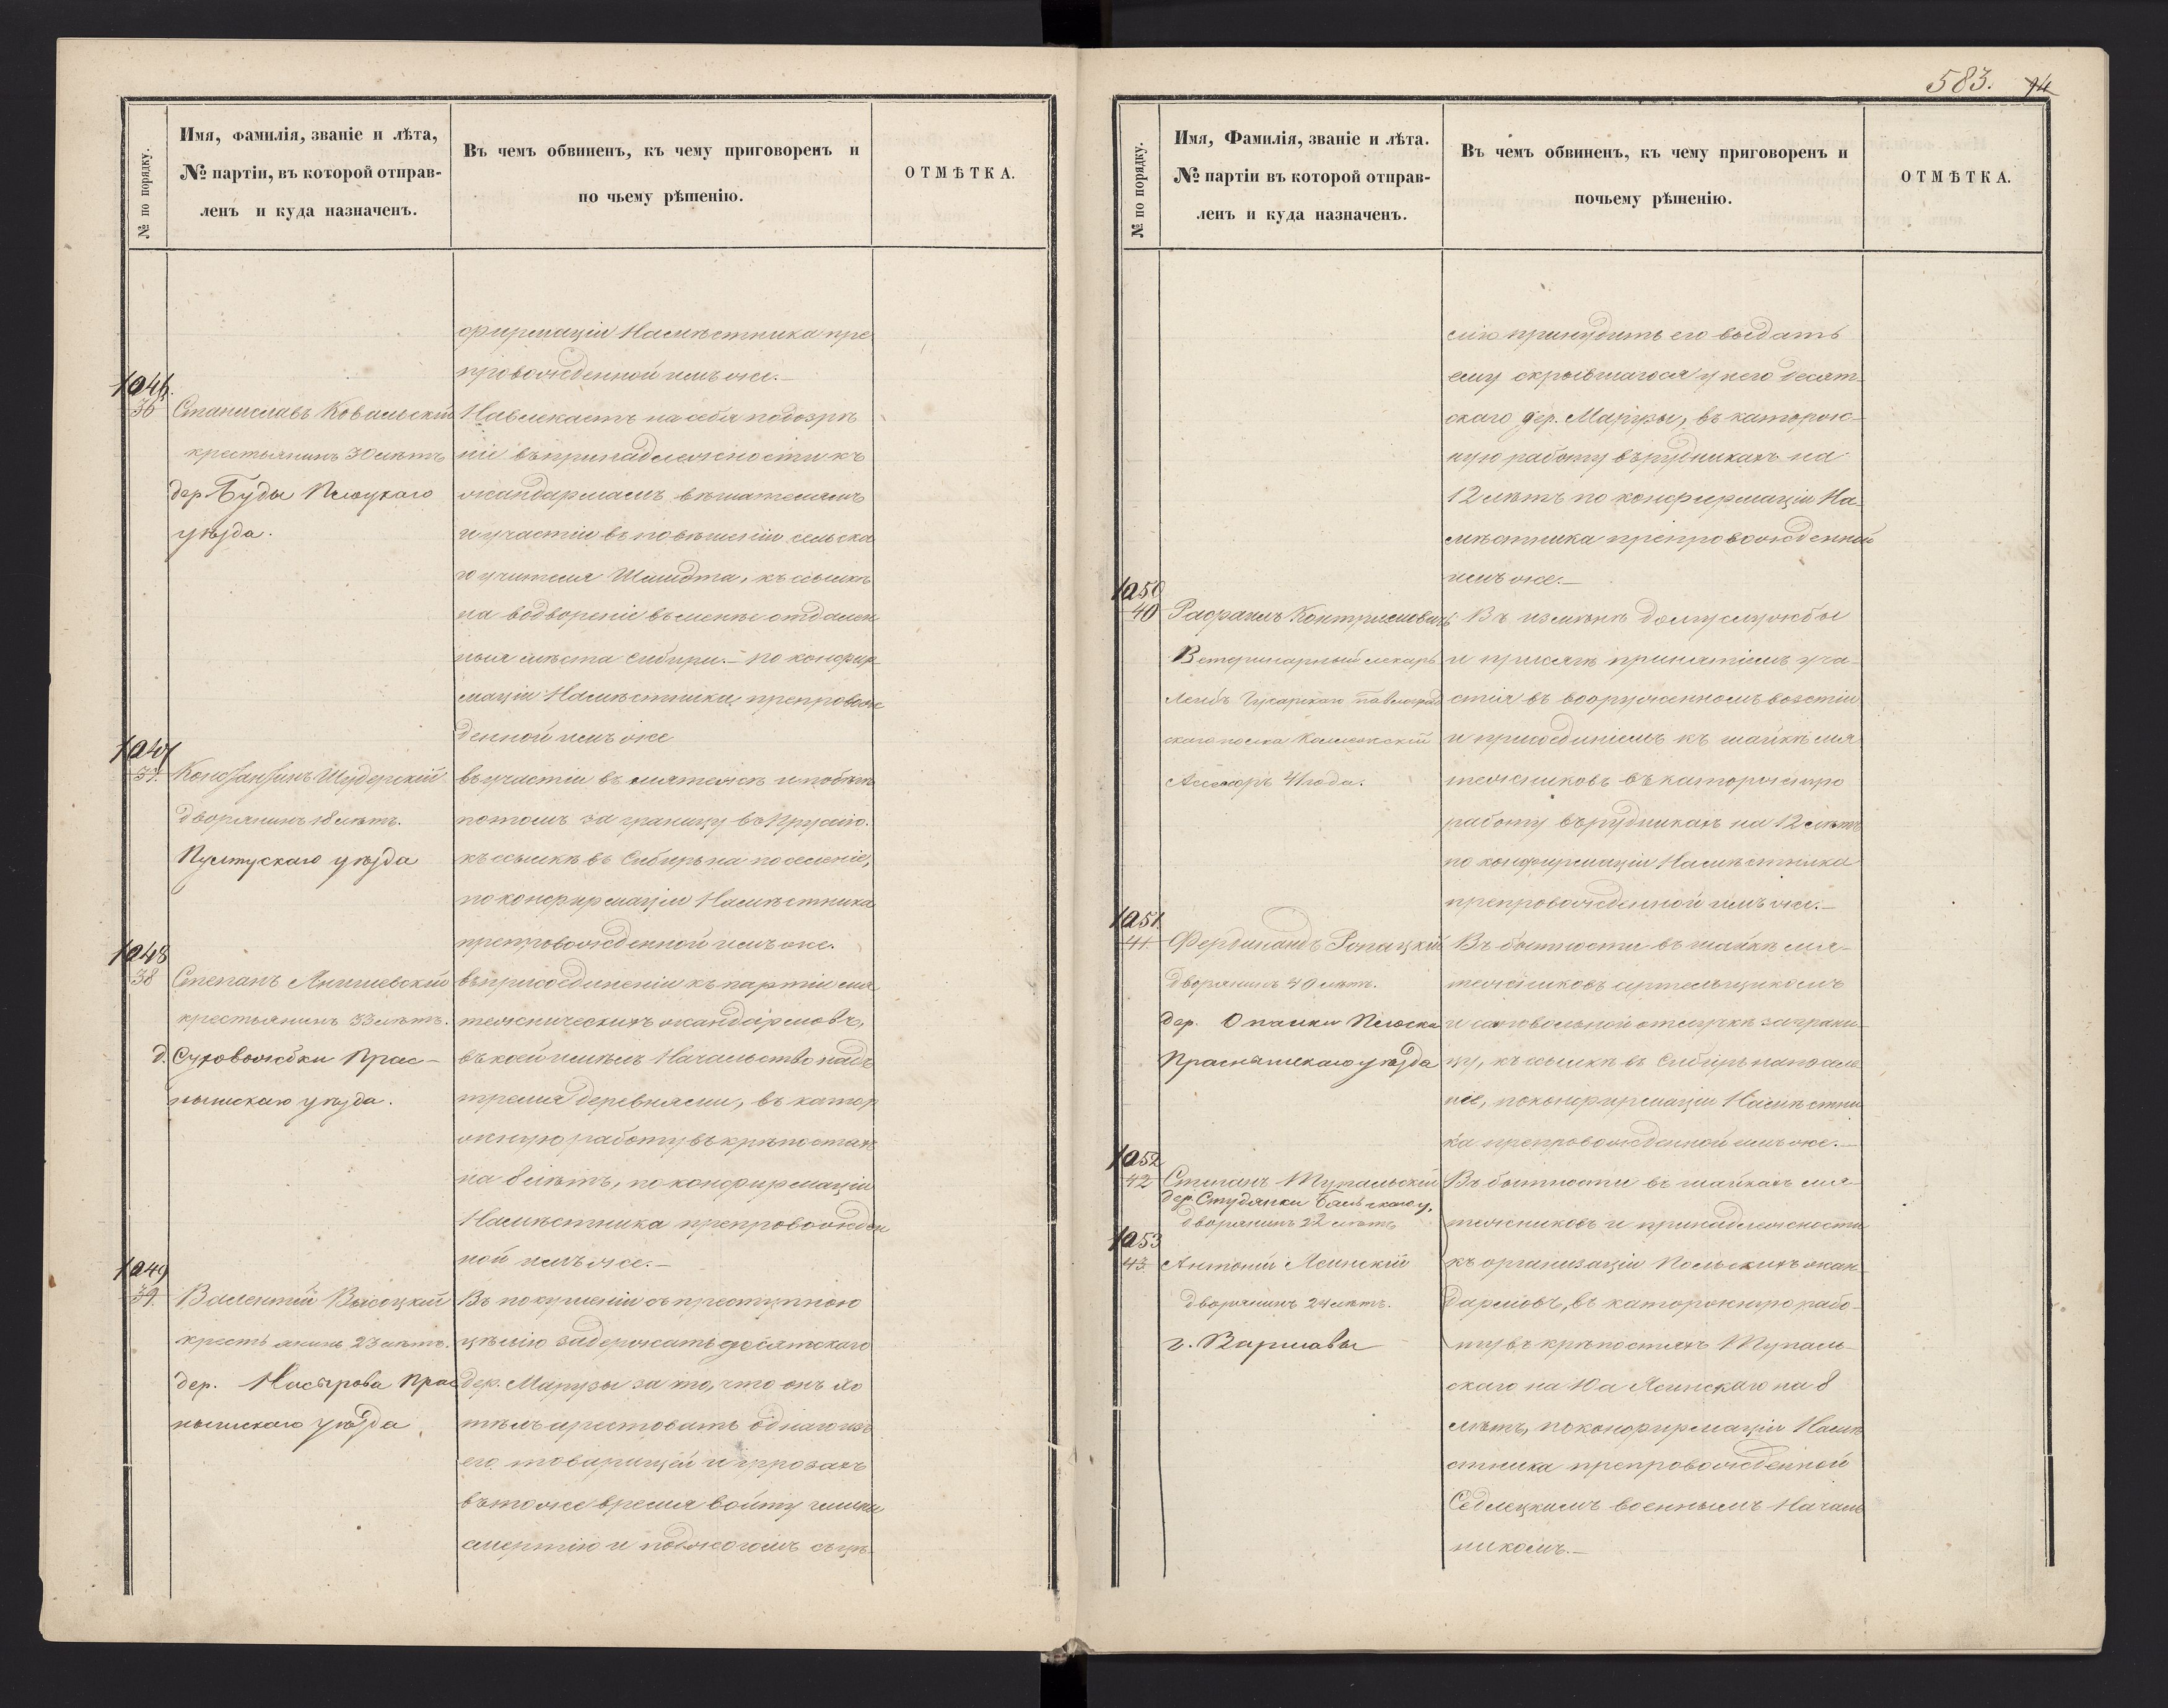 № по порядку.
Имя, фамилія, званіе и лѣта,
№ партіи, въ которой отправ-
ленъ и куда назначенъ.
Въ чемъ обвиненъ, къ чему приговоренъ и
по чьему рѣшенію.
ОТМѢТКА.
фирмаціи Намѣстника пре
провожденной имъ же.—
1046.
36
Станиславъ Ковальскій
крестьянинъ 30 лѣтъ
дер. Буды Плоцкаго
уѣзда.
Навлекаетъ на себя подозрѣ
ніе въ принадлежности къ
жандармамъ вѣшателямъ
и участіи въ повѣшеніи сельска
го учителя Шмидта, къ ссылкѣ
на водвореніе въ менѣе отдален
ныя мѣста Сибири.— по конфир
маціи Намѣстника, препровож
денной имъ же
1047
37.
Константинъ Шудерскій
дворянинъ 18 лѣтъ.
Пултускаго уѣзда
въ участіи въ мятежѣ и побѣгѣ
потомъ за границу въ Пруссію.
къ ссылкѣ въ Сибирь на поселеніе,
по конфирмаціи Намѣстника
препровожденной имъ же.
1048
38
Степанъ Янишевскій
крестьянинъ 33 лѣтъ.
д. Суховожбки Прас-
нышскаго уѣзда.
въ присоединеніи къ партіи мя
тежническихъ жандармовъ,
въ коей имѣлъ Начальство надъ
тремя деревнями, въ катор
жную работу въ крѣпостяхъ
на 8 лѣтъ, по конфирмаціи
Намѣстника препровожден
ной имъ же.—
1049
39.
Валентій Высоцкій
крестьянинъ 23 лѣтъ.
дер. Прас
нышскаго уѣзда
Въ покушеніи съ преступною
цѣлію задержать десятскаго
дер. Марузы за то, что онъ хо
тѣлъ арестовать однаго изъ
его товарищей и угрозахъ
въ тоже время войту гмины
смертію и поджогомъ съ цѣ-
583. 74
№ по порядку.
Имя, Фамилія, званіе и лѣта.
№ партіи въ которой отправ-
ленъ и куда назначенъ.
Въ чемъ обвиненъ, къ чему приговоренъ и
почьему рѣшенію.
ОТМѢТКА.
лію принудить его выдать
ему скрывшагося у него десят-
скаго дер. Марузы, въ каторж-
ную работу въ рудникахъ на
12 лѣтъ по конфирмаціи На-
мѣстника препровожденной
имъ же.—
1050
40
Рафаилъ Контримовичъ
Ветеринарный лекарь
Лейбъ Гусарскаго Павлоград
скаго полка Коллежскій
Ассесоръ 41 года.
Въ измѣнѣ долгу службы
и присягѣ принятіемъ уча-
стія въ вооруженномъ возстаніи
и присоединіемъ къ шайкѣ мя
тежниковъ въ каторжную
работу въ рудникахъ на 12 лѣтъ
по конфирмаціи Намѣстника
препровожденной имъ же.—
1051
41
Фердинандъ Ропацкій
дворянинъ 40 лѣтъ.
дер. Опалки
Праснышскаго уѣзда
Въ бытности въ шайкѣ мя-
тежниковъ артельщикомъ
и самовольной отлучкѣ за грани-
цу, къ ссылкѣ въ Сибирь на поселе
ніе, по конфирмаціи Намѣстни
ка препровожденной имъ же.—
1052
42
Степанъ Тупальскій
дер. Студянки Бѣльскаго у.
дворянинъ 22 лѣтъ
Въ бытности въ шайкахъ мя-
тежниковъ и принадлежности
1053
43
Антоній Ясинскій
дворянинъ 24 лѣтъ.
г. Варшавы
къ организаціи Польскихъ жан-
дармовъ, въ каторжную рабо-
ту въ крѣпостяхъ Тупаль-
скаго на 10 а Ясинскаго на 8
лѣтъ, по конфирмаціи Намѣ
стника препровожденной
Седлецкимъ военнымъ Началь
никомъ.—